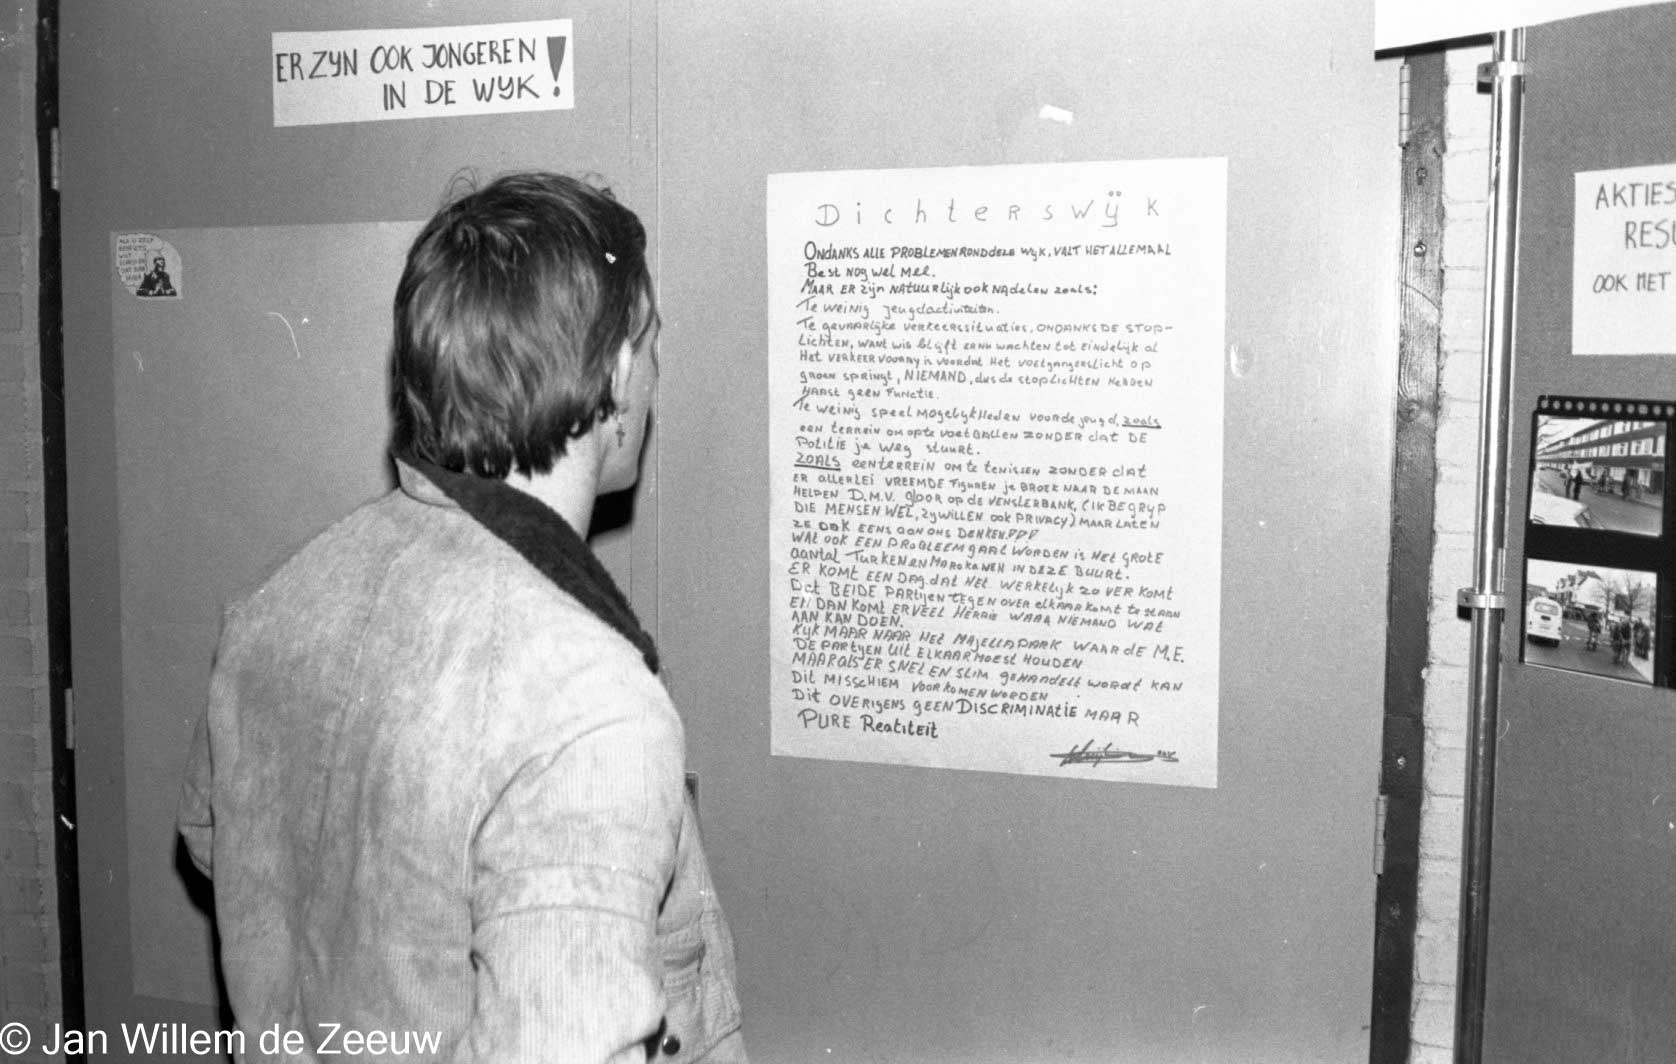 ER ZYN OOK JONGEREN
IN DE WYK!
ALS U ZELF
Dichterswÿk
ONDANKS ALLE PROBLEMEN ROND DEZE WIJK, VALT HET ALLEMAAL
Best NOG WEL MEE.
MAAR ER Zijn NATUURLIJK OOK NADELEN ZOALS:
Te WEINIG Jeugdactiviteiten.
Te gevaarlijke verkeerssituaties, ONDANKS DE STOP-
LICHTEN, WANT WIE blijft ER NU WACHTEN tot EINDELIJK al
Het VERKEER VOORBY is VOORDAT Het voetgangerslicht OP
groen springt, NIEMAND, dus de stoplichten HEBBEN
HAAST geen Functie.
Te WEINIG speel MogelykHeden voor de jeugd, zoals
een terrein om op te voetballen ZONDER dat DE
Politie je weg stuurt.
ZOALS een terrein om te tennissen ZONDER dat
ER allerlei VREEMDE Figuren je BROEK NAAR DE MAAN
HELPEN D.M.V. gloor op de VENSTERBANK, (IK BEGRYP
DIE MENSEN WEL, zy WILLEN ook PRIVACY) MAAR LATEN
ZE OOK EENS aan ons DENKEN.
WAT OOK EEN PROBLEEM gaat WORDEN is HET GROTE
aantal TURKEN en MAROKANEN IN DEZE BUURT.
ER KOMT EEN DAG dat HET WERKELYK ZO VER KOMT
Dat BEIDE PARTIJEN TEGEN OVER elkaar komt te staan
EN DAN KOMT ER VEEL HERRIE WAAR NIEMAND WAT
AAN KAN DOEN.
KIJK MAAR NAAR HET MAJELLAPARK WAAR dE M.E.
DE PARTYEN UIT ELKAAR MOEST HOUDEN
MAAR als ER SNEL EN SLIM GEHANDELT wordt KAN
Dit MISSCHIEM VOORKOMEN WORDEN
Dit OVERIGENS geen DISCRIMINATIE MAAR
PURE Realiteit
AKTIES
RESU
OOK MET
© Jan Willem de Zeeuw